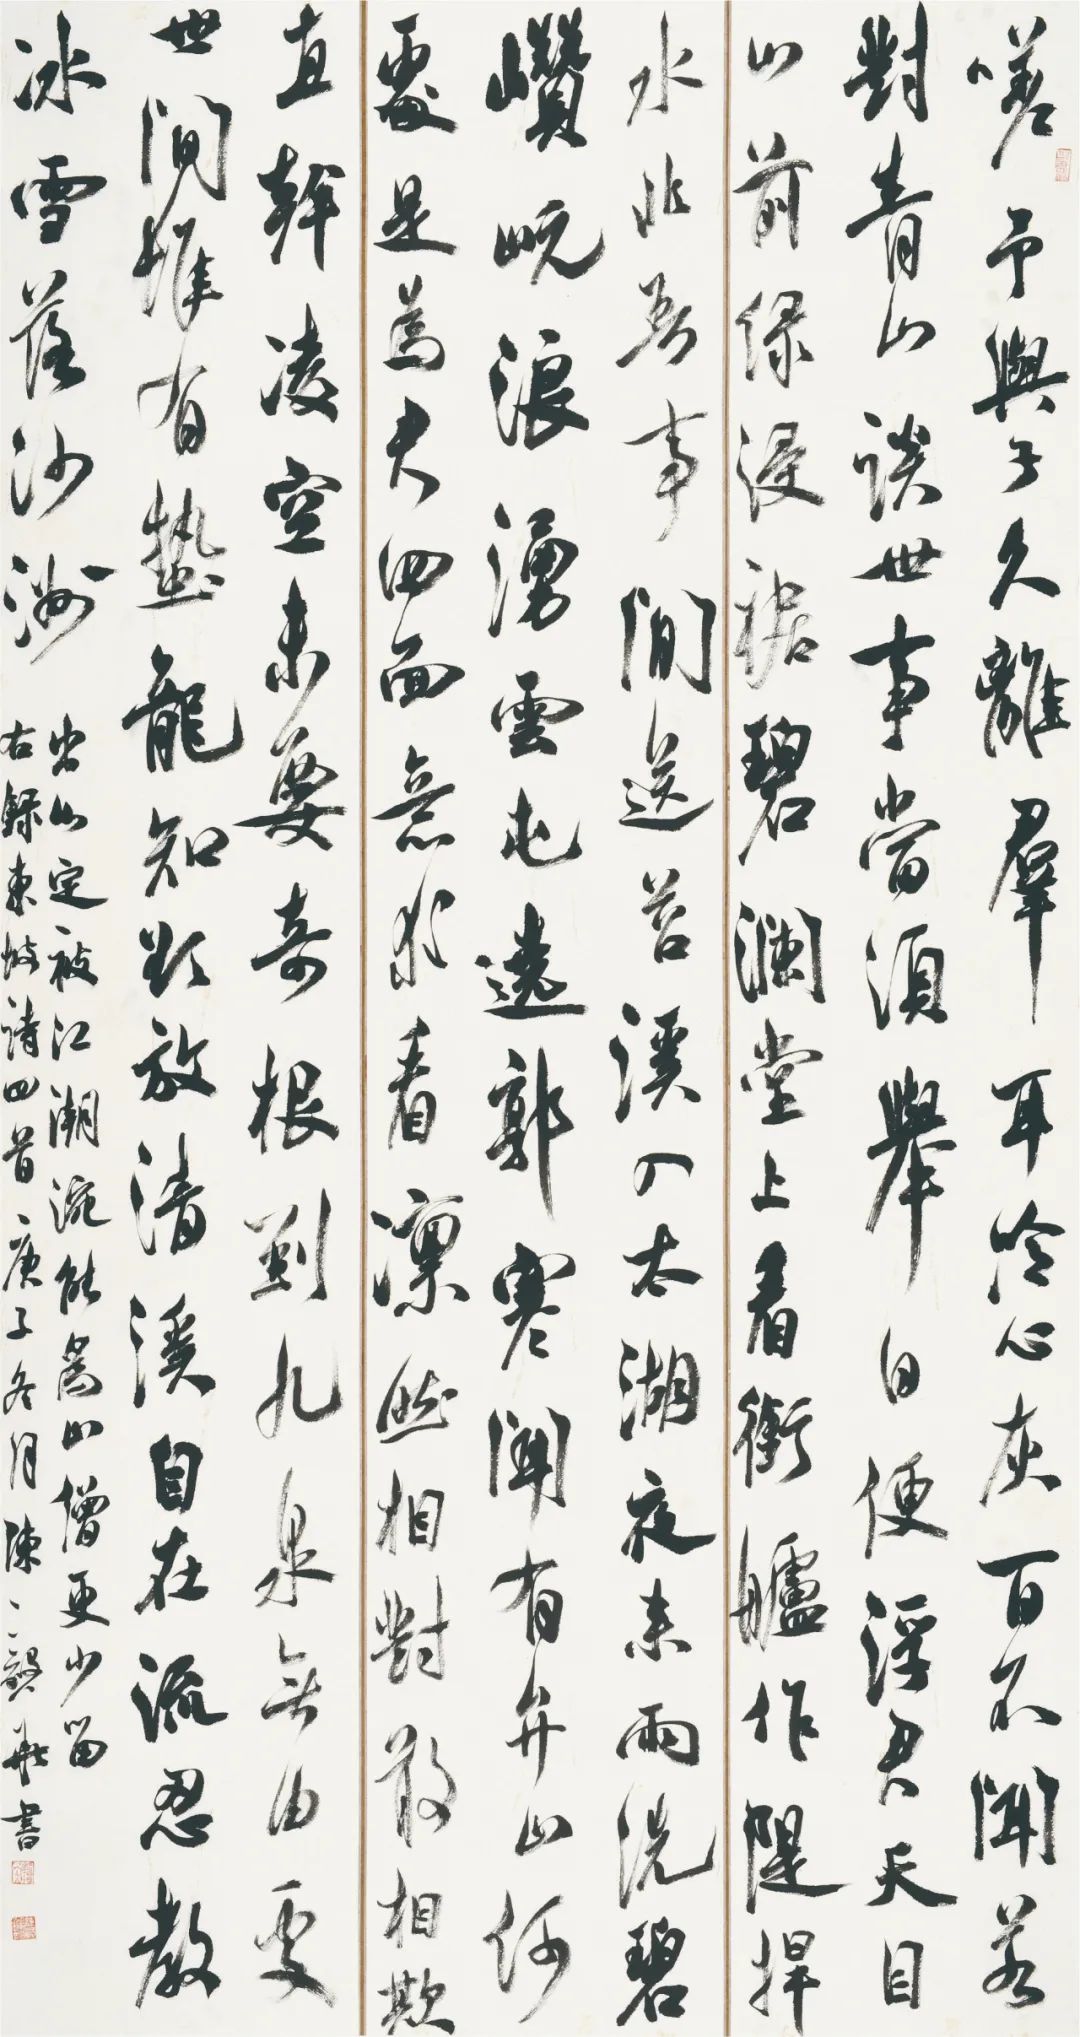 嗟予與子久離羣耳冷心灰百不聞若
對青山談世事當須舉白便浮君天目
山前綠浸裾碧瀾堂上看銜艫作隄捍
水非吾事閒送苕溪入太湖夜來雨洗碧
巑岏浪湧雲屯遶郭寒聞有弁山何
處是為君四面意求看凜然相對敢相欺
直幹凌空未要奇根到九泉無曲處
世間惟有蟄龍知欲放清溪自在流忍教
冰雪落沙洲
出山定被江湖涴能為山僧更少留
右錄東坡詩四首庚子冬月陳書